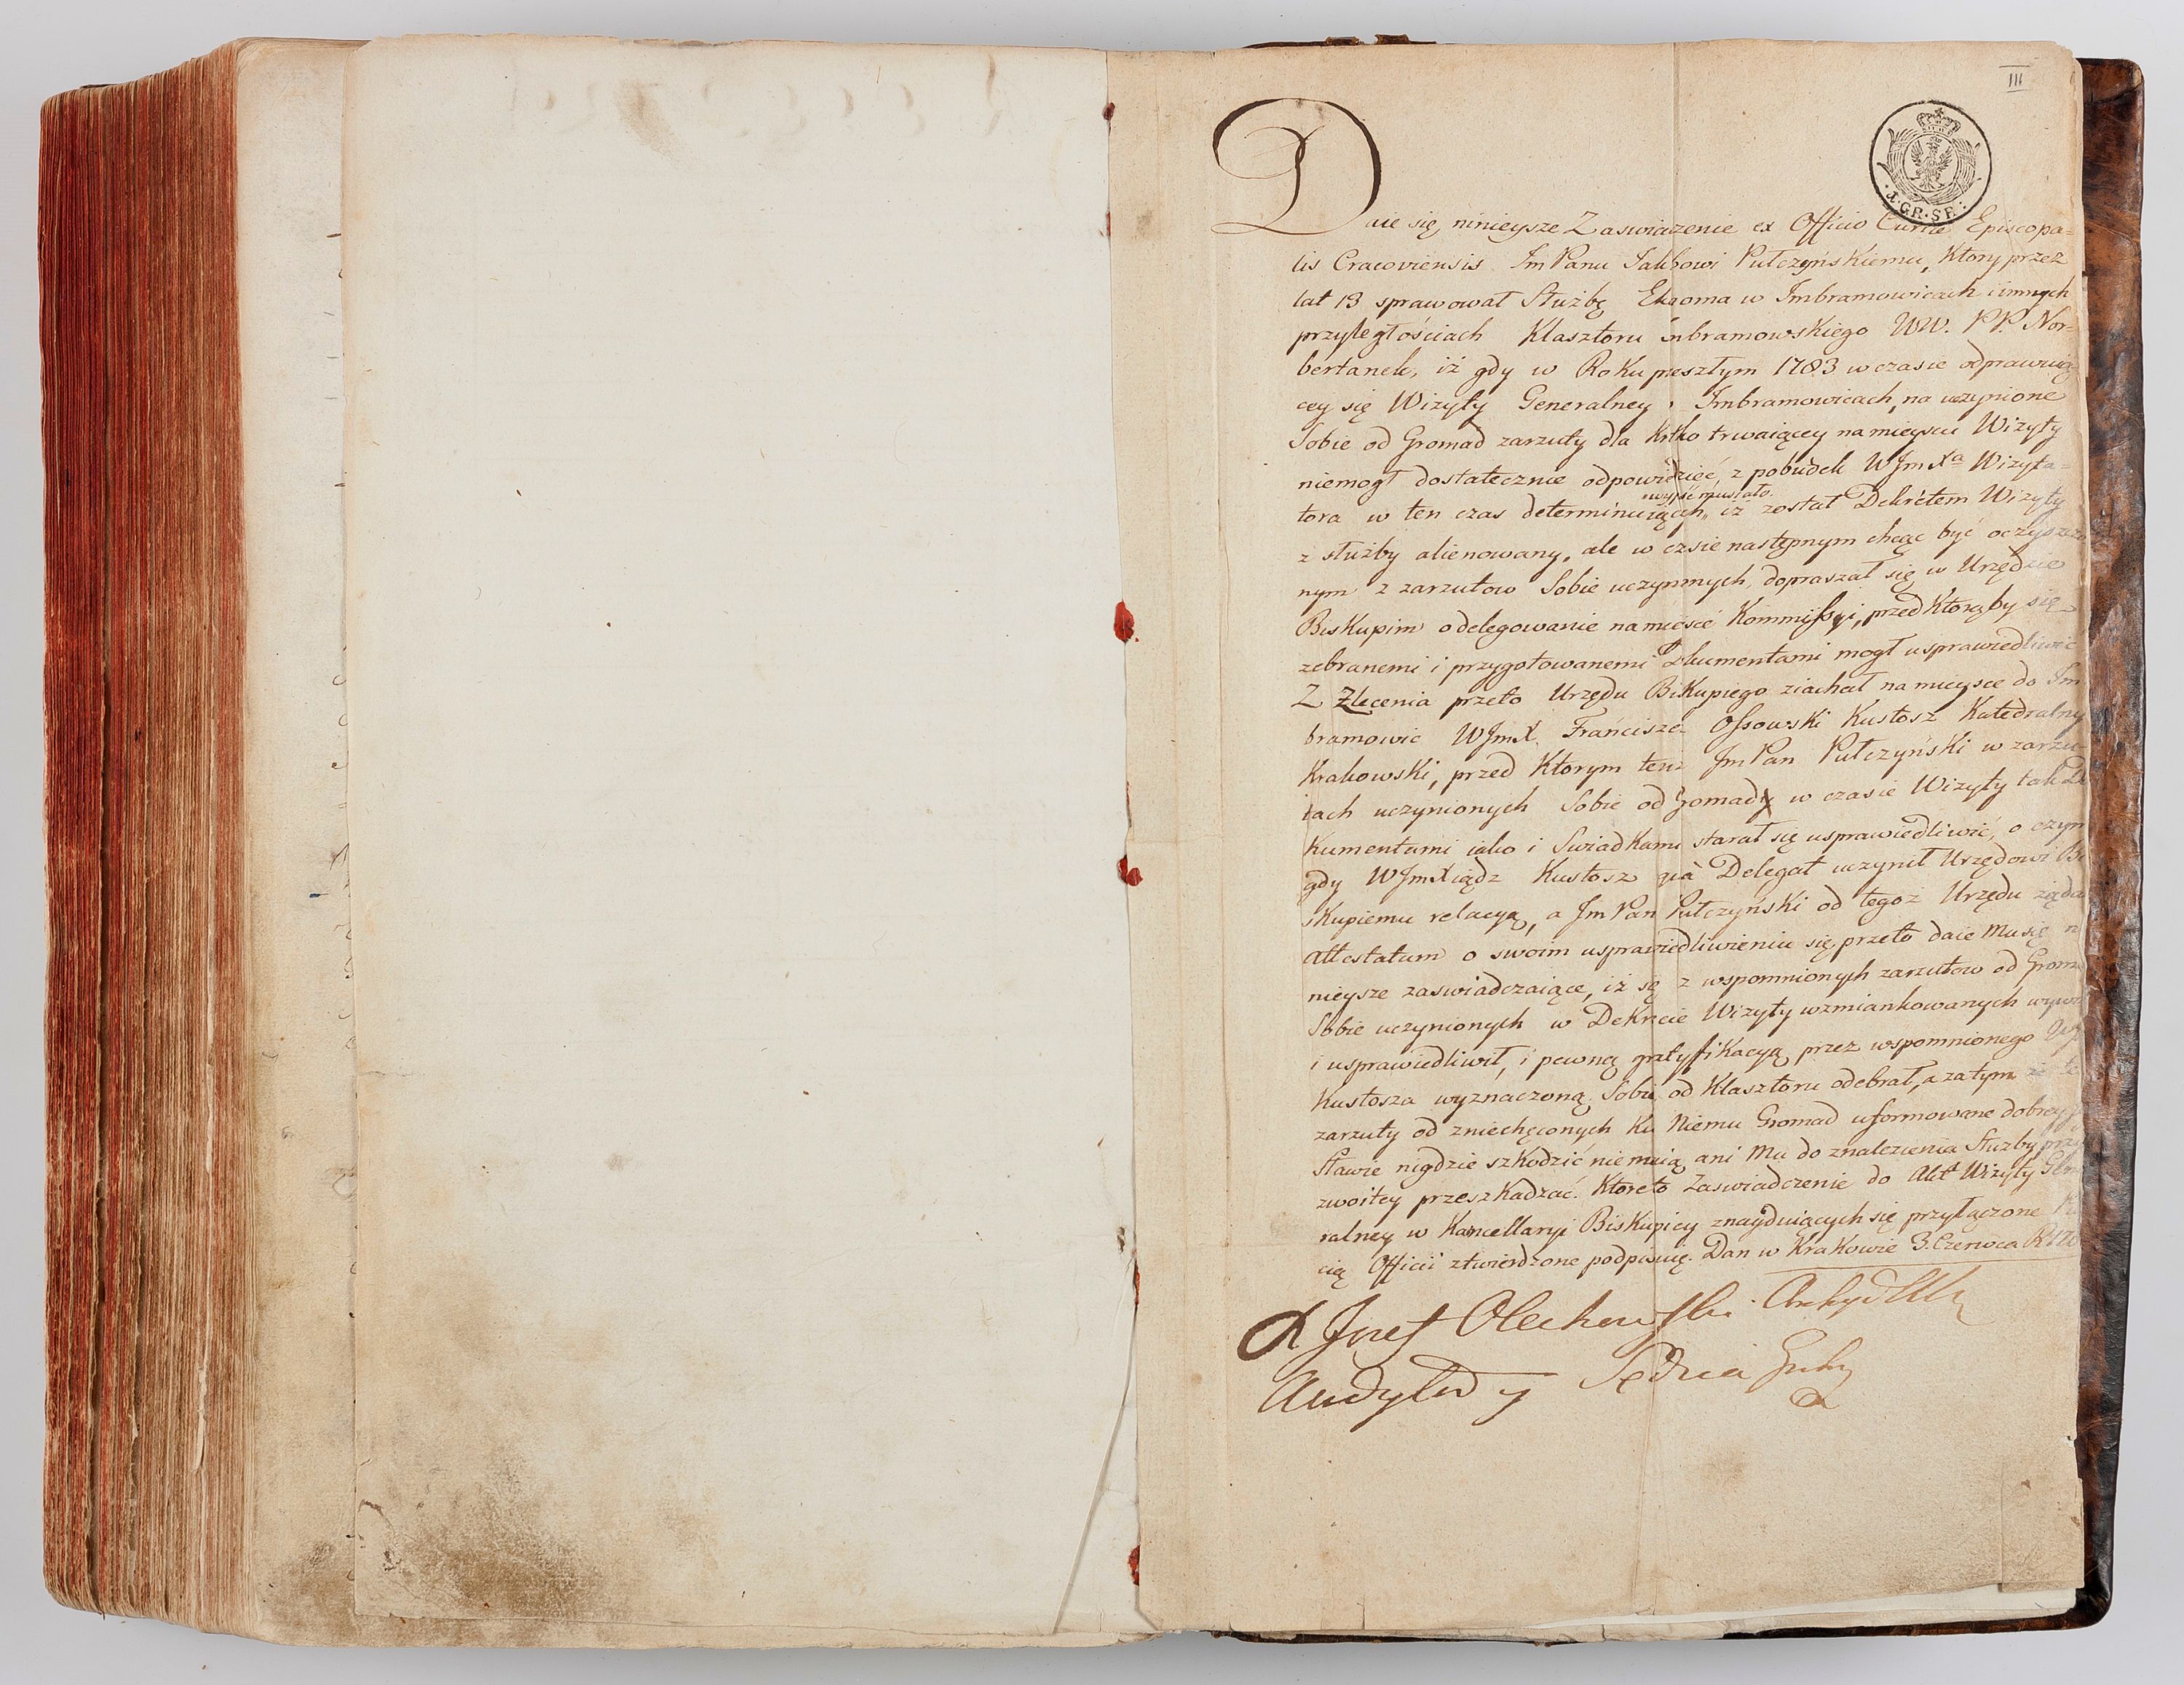 III
4.GR.SR.
Daie się ninieysze Zaswiadczenie ex Officio Curiae Episcopa=
lis Cracoviensis Im Panu Jakubowi Pułczyńskiemu, Ktory przez
lat 13 sprawował Służbę Ekonoma w Imbramowicach i innych
przyległościach Klasztoru Inbramowskiego WW. PP. Nor=
bertanek, iż gdy w Roku przeszłym 1783 w czasie odprawuią
cey się Wizyty Generalney Imbramowicach, na uczynione
Sobie od Gromad zarzuty dla Krotko trwaiącey na mieyscu Wizyty
niemogł dostatecznie odpowiedzieć, z pobudek WJmXa Wizyta=
wyjść musiało.
tora w ten czas determinuiących, iż został Dekretem Wizyty
z służby alienowany, ale w czsie następnym chcąc być oczyszczo
nym z zarzutow Sobie uczynionych, dopraszał się w Urzędzie
Biskupim o delegowanie na miesce Kommissyi, przed Ktorąby się
zebranemi i przygotowanemi Dokumentami mogł usprawiedliwić
Z Zlecenia przeto Urzędu Biskupiego ziachał na mieysce do Im
bramowic WJmX. Franciszek Ossowski Kustosz Katedralny
Krakowski, przed Ktorym tenże Jm Pan Pułczyński w zarzu=
tach uczynionych Sobie od Gromady w czasie Wizyty tak Do
Kumentami iako i Swiadkami starał się usprawiedliwić, o czym
gdy WJmXiądz Kustosz quà Delegat uczynił Urzędowi Bi
skupiemu relacyą, a Jm Pan Pułczyński od tegoż Urzędu żąda
attestatum o swoim usprawiedliwieniu się, przeto daie Mu się ni
nieysze zaswiadczaiące, iż się z wspomnionych zarzutow od Groma
Sobie uczynionych w Dekrecie Wizyty wzmiankowanych wywi
i usprawiedliwił, i pewną gratyfikacyą przez wspomnionego WJ
Kustosza wyznaczoną Sobie od Klasztoru odebrał, a zatym że te
zarzuty od zniechęconych Ku Niemu Gromad uformowane dobrey J
Sławie nigdzie szkodzić niemaią ani Mu do znalezienia Służby przy
zwoitey przeszkadzać. Ktoreto Zaswiadczenie do Akt Wizyty Gene
ralney w Kancellaryi Biskupiey znayduiących się przyłączone Pie
cią Officii ztwierdzone podpisuię. Dan w Krakowie 3. Czerwca R 178
X Jozef Olechowski Archyd KK
Audytor y Sędzia Gnlny